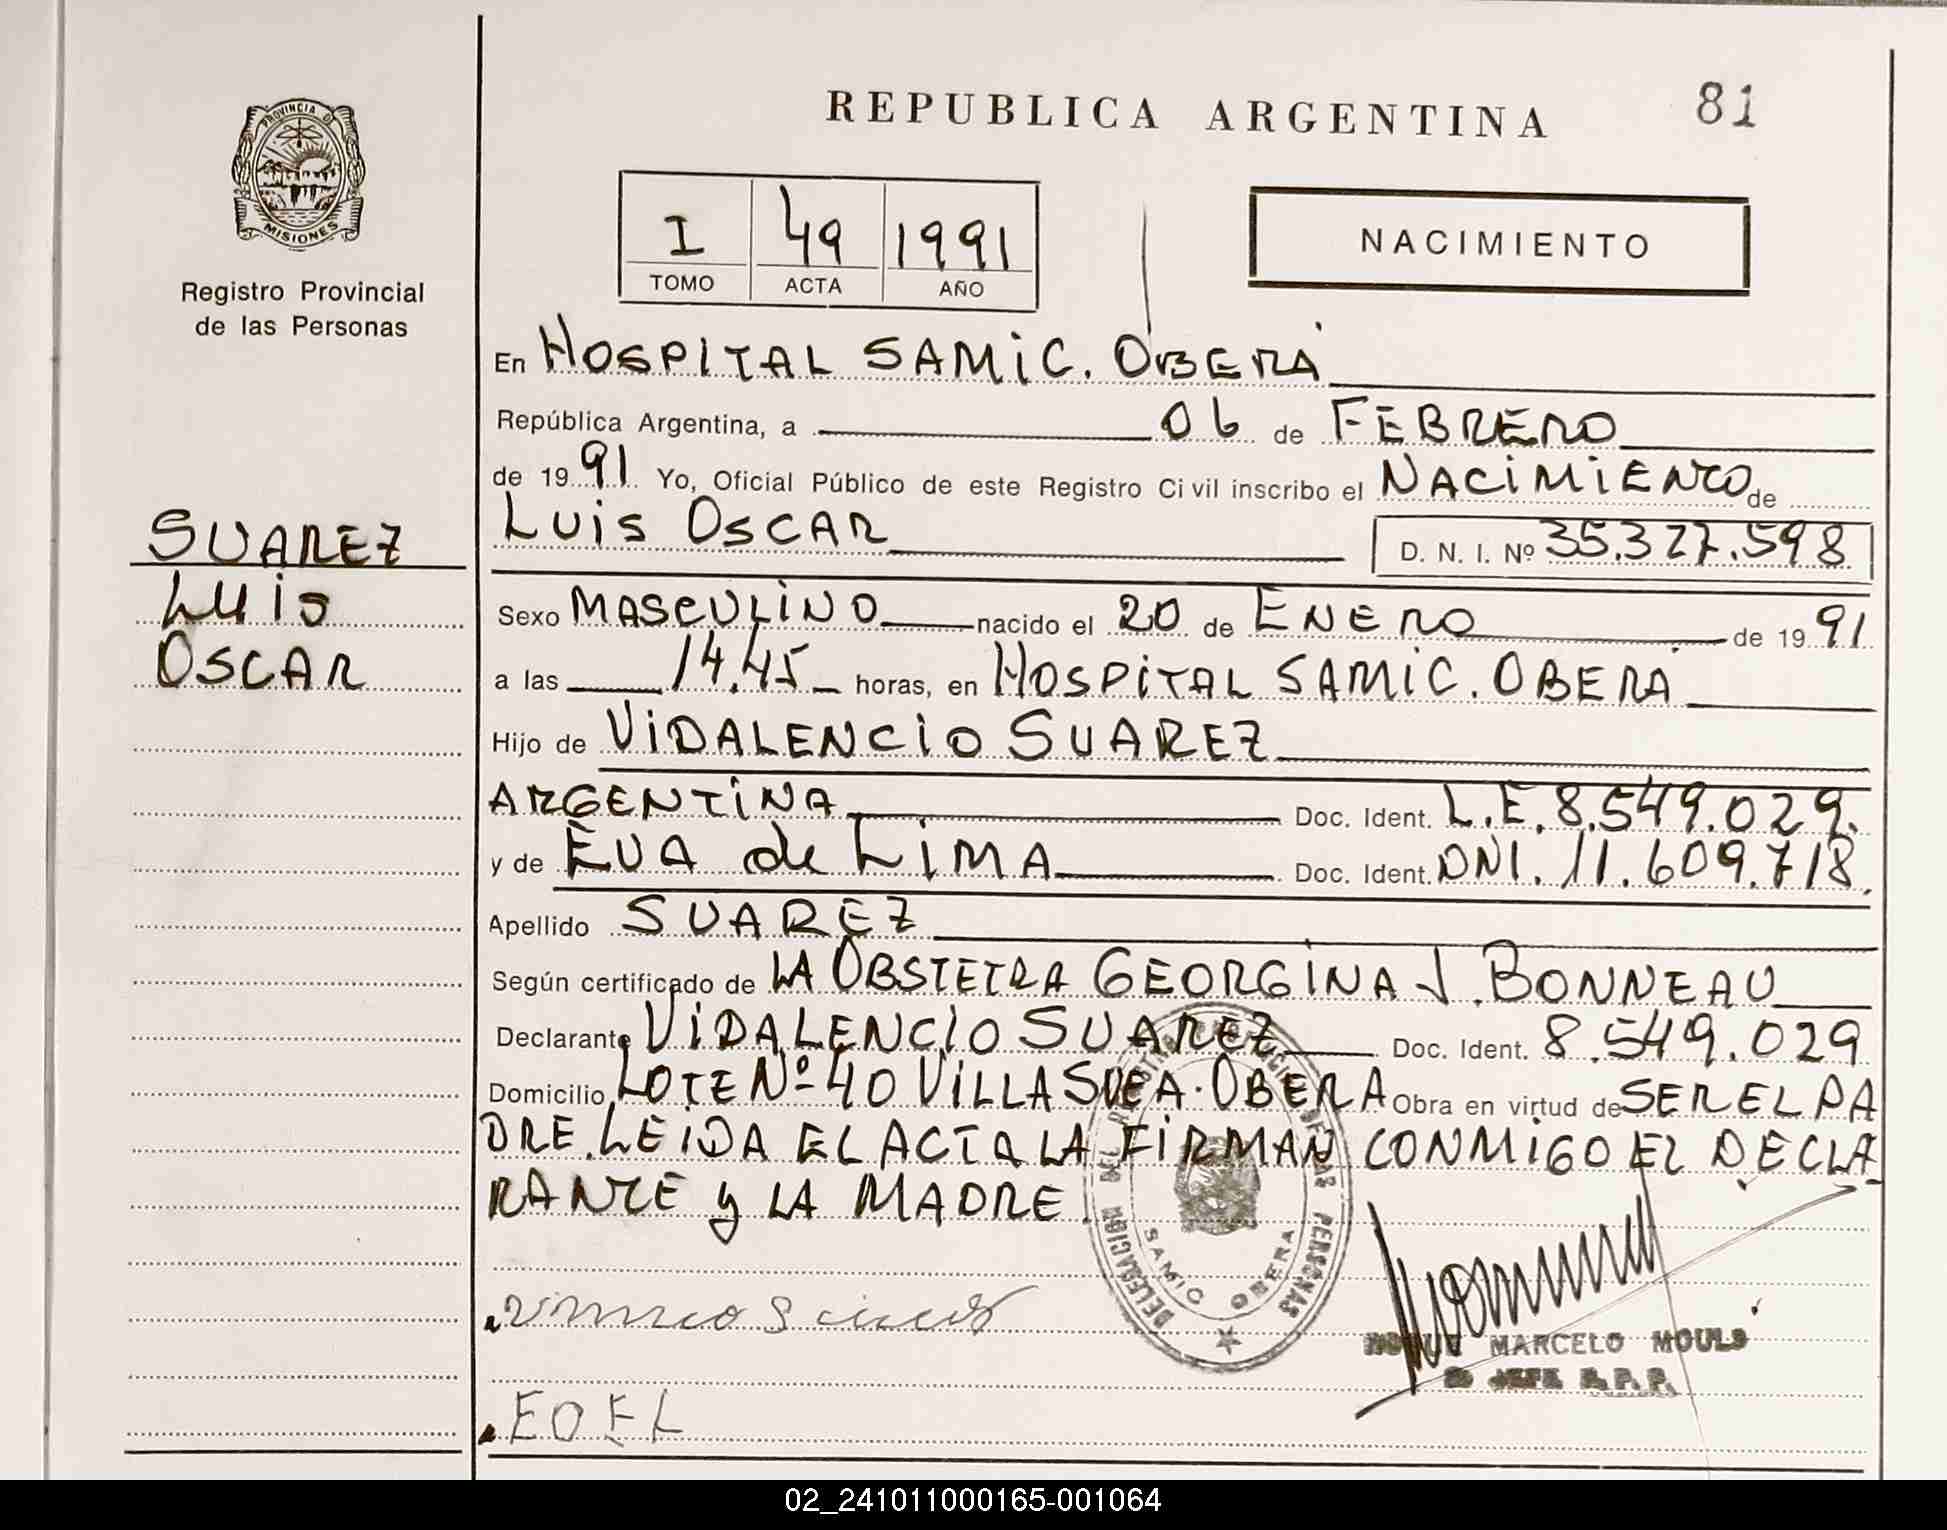 REPUBLICA ARGENTINA
81
PROVINCIA D
MISIONES
Registro Provincial
de las Personas
I 49 1991
TOMO ACTA AÑO
NACIMIENTO
En HOSPITAL SAMIC. OBERÁ
República Argentina, a 06 de FEBRERO
de 1991 Yo, Oficial Público de este Registro Civil inscribo el NACIMIENTO de
LUIS OSCAR D. N. I. Nº 35.327.598
SUAREZ
LUIS
OSCAR
Sexo MASCULINO nacido el 20 de ENERO de 1991
a las 14.45 horas, en HOSPITAL SAMIC. OBERÁ
Hijo de VIDALENCIO SUAREZ
ARGENTINA Doc. Ident. L.E. 8.549.029.
y de EVA de LIMA Doc. Ident. DNI. 11.609.718.
Apellido SUAREZ
Según certificado de LA OBSTETRA GEORGINA J. BONNEAU
Declarante VIDALENCIO SUAREZ Doc. Ident. 8.549.029
Domicilio LOTE Nº 40 VILLA SVEA. OBERA Obra en virtud de SER EL PA
DRE. LEIDA EL ACTA LA FIRMAN CONMIGO EL DECLA
RANTE y LA MADRE.
DELEGACION DEL REGISTRO PROVINCIAL DE LAS PERSONAS
SAMIC OBERA
MARCELO MOULS
JEFE R.P.P.
02_241011000165-001064